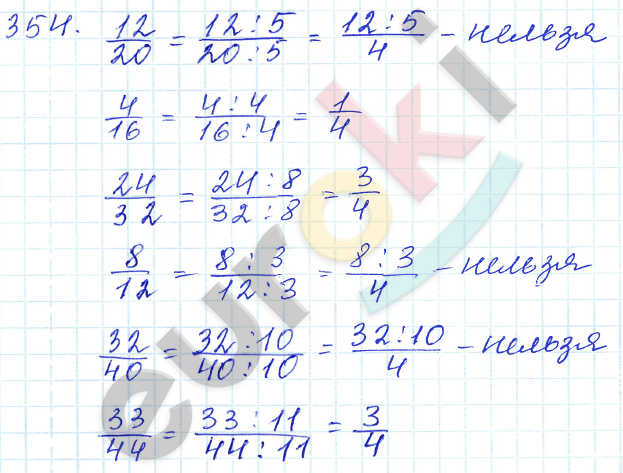 354. 12/20 = 12:5/20:5 = 12:5/4 – нельзя
4/16 = 4:4/16:4 = 1/4
24/32 = 24:8/32:8 = 3/4
8/12 = 8:3/12:3 = 8:3/4 – нельзя
32/40 = 32:10/40:10 = 32:10/4 – нельзя
33/44 = 33:11/44:11 = 3/4
euroki